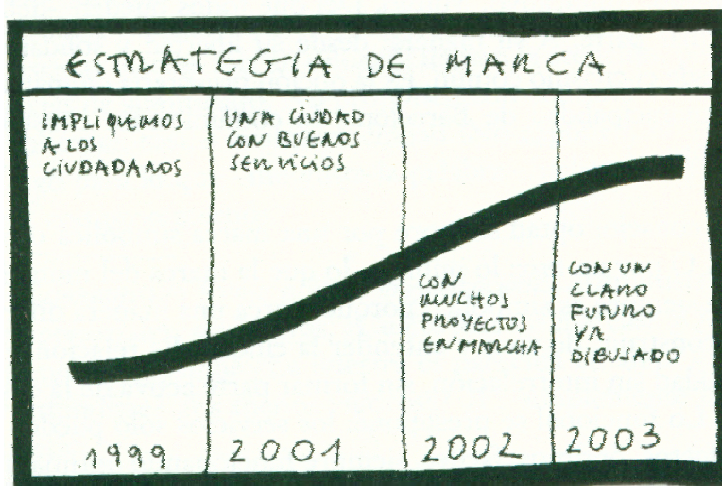 ESTRATEGIA DE MARCA
IMPLIQUEMOS
A LOS
CIUDADANOS
UNA CIUDAD
CON BUENOS
SERVICIOS
CON
MUCHOS
PROYECTOS
EN MARCHA
CON UN
CLARO
FUTURO
YA
DIBUJADO
1999
2001
2002
2003